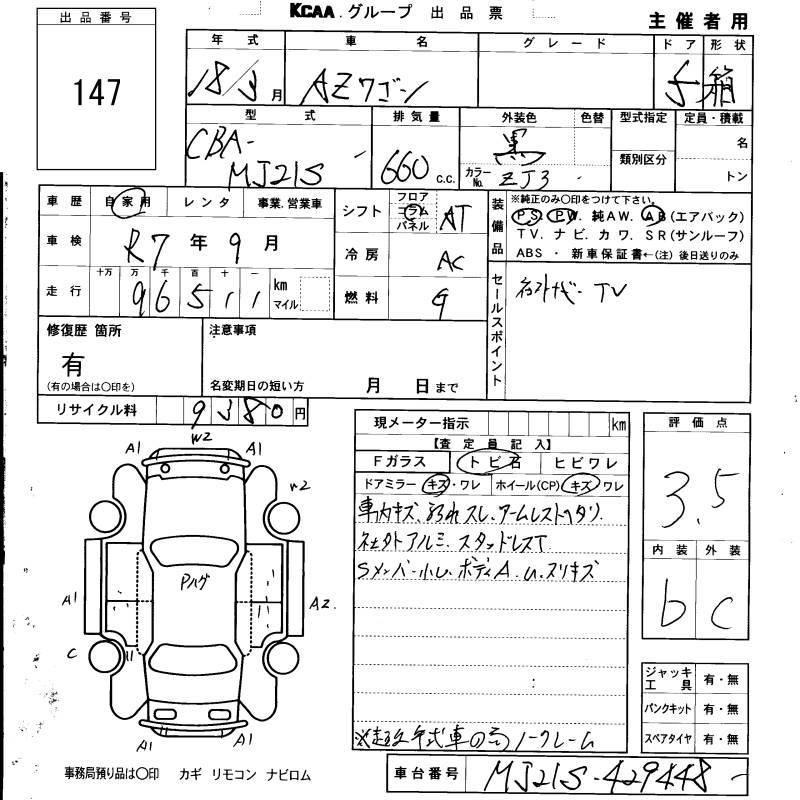 KCAA グループ 出品票
主催者用
出品番号
147
年式 車名 グレード ドア 形状
18/3月 AZワゴン 5 箱
型式 排気量 外装色 色替 型式指定 定員・積載
CBA-MJ21S 660 c.c. 黒 カラーNo. ZJ3 類別区分 名
トン
車歴 自家用 レンタ 事業,営業車
車検 R7年9月
走行 十万 万 千 百 十 一 km マイル
96511
シフト フロア コラム パネル AT
冷房 AC
燃料 G
装備品 ※純正のみ○印をつけて下さい。
PS PW. 純AW. AB(エアバック)
TV. ナビ. カワ. SR(サンルーフ)
ABS ・ 新車保証書←(注) 後日送りのみ
セールスポイント
TV
修復歴 箇所
有
(有の場合は○印を)
注意事項
名変期日の短い方 月 日まで
リサイクル料 9380円
現メーター指示 km
【査定員記入】
Fガラス トビ石 ヒビワレ
ドアミラー キズ・ワレ ホイール(CP) キズ ワレ
車内キズ、汚れ スレ、アームレストヘタリ.
社外アルミ. スタッドレスT
Sメンバー小U. ボディA.U.スリキズ
ノークレーム
評価点
3.5
内装 外装
b C
ジャッキ工具 有・無
パンクキット 有・無
スペアタイヤ 有・無
W2
A1 A1
W2
Pハゲ
A1 A2.
C
A1 A1
事務局預り品は○印 カギ リモコン ナビロム
車台番号 MJ21S-429448